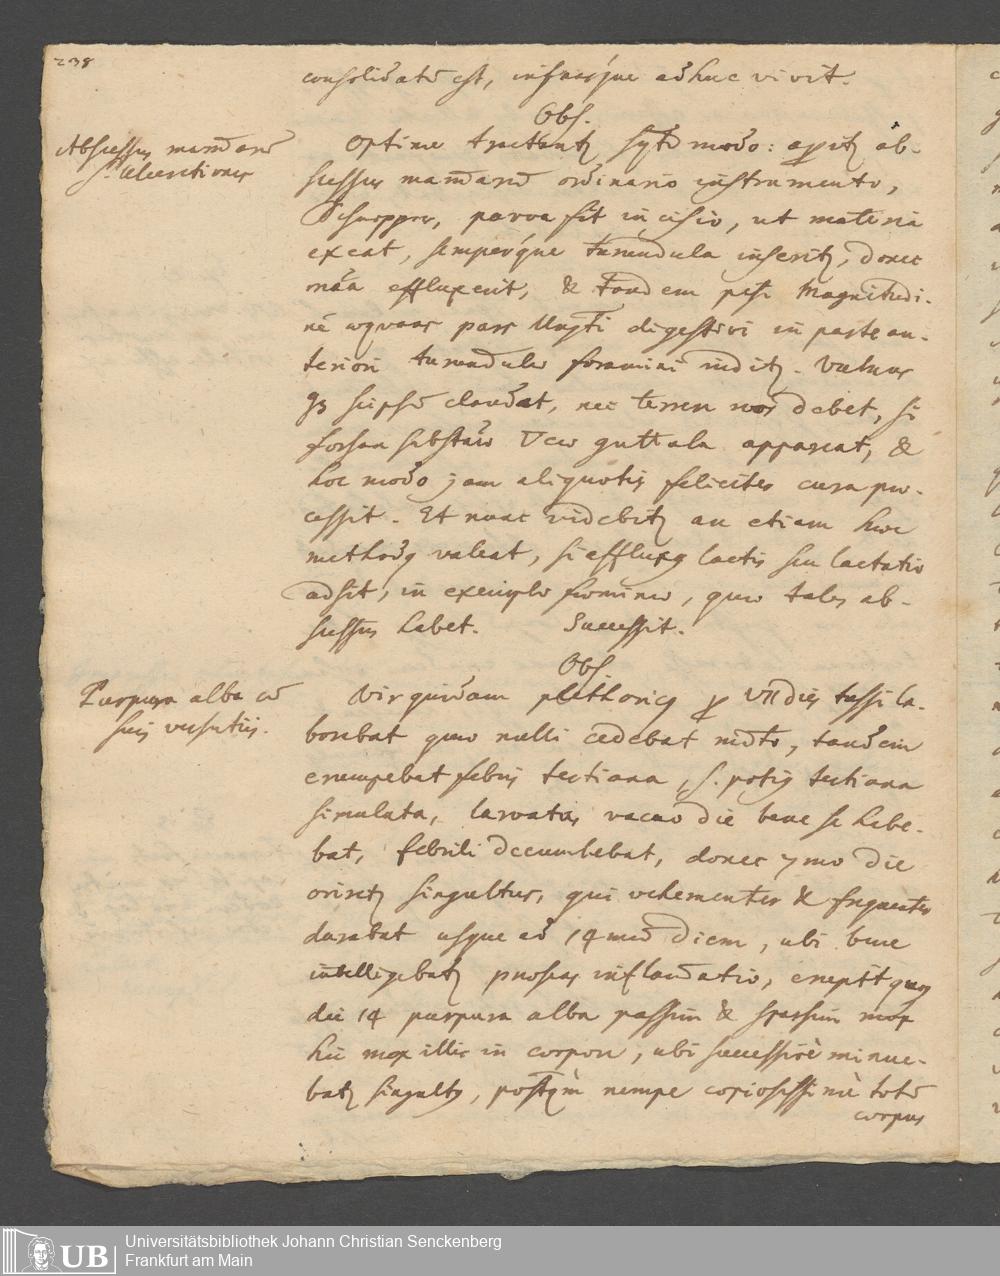 238
consolidatū est, infansque adhuc vivit.
Obs.
Abscessus mam̄arū
s. ulcerationes
Optime tractantr seqtī modo: aperitr ab-
scessus mam̄arū ordinario instrumento,
Schnepper, parva fit incisio, ut materia
exeat, semperque turundula inseritr, donec
mãa effluxerit, & tandem pisi magnitudi-
nē aequans pars Ungti digestivi in parte an-
teriori turundulae foramini inditr. Vulnus
seipsū claudat, nec terreri nos debet, si
forsan substantia guttula appareat, &
hoc modo jam aliquoties felicites cura pro-
cessit. Et nunc videbitr an etiam haec
methodus valeat, si effluxus lactis seu lactatio
adsit, in exemplo foeminae, quae tales ab-
scessus habet. Successit.
Obs.
Purpura alba cū
suis versutiis.
Vir quidam plethoricus per VII dies tussi la-
borabat quae nulli cedebat mdto, tandem
erumpebat febris tertiana, s. potius tertiana
simulata, larvata, vacuo die bene se habe-
bat, febrili decumbebat, donec 7mo die
oriretr singultus, qui vehementer & frequenter
durabat usque ad 14med diem, ubi bene
intelligebatr inflam̄atio,
die 14 purpura alba passim & sparsim mox
hic mox illic in corpore, ubi successivè minue-
batr singultus, postquàm nempe copiosissimè totū
corpus
Universitätsbibliothek Johann Christian Senckenberg
UB
Frankfurt am Main